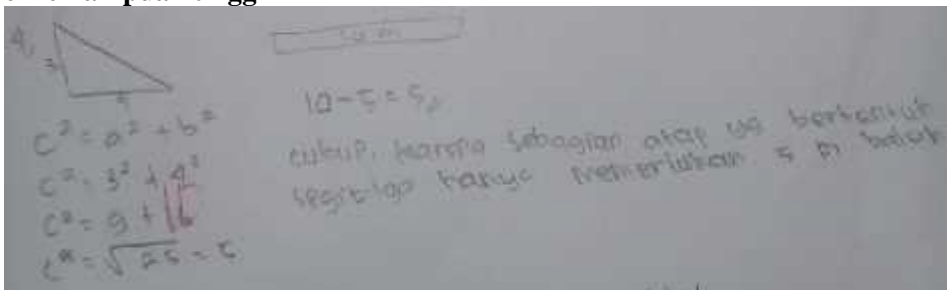 4.
3
c² = a² + b²
c² = 3² + 4²
c² = 9 + 16
c² = √25 = 5
10 - 5 = 5
cukup, karena sebagian atap yg berbentuk
segitiga hanya memerlukan 5 m balok